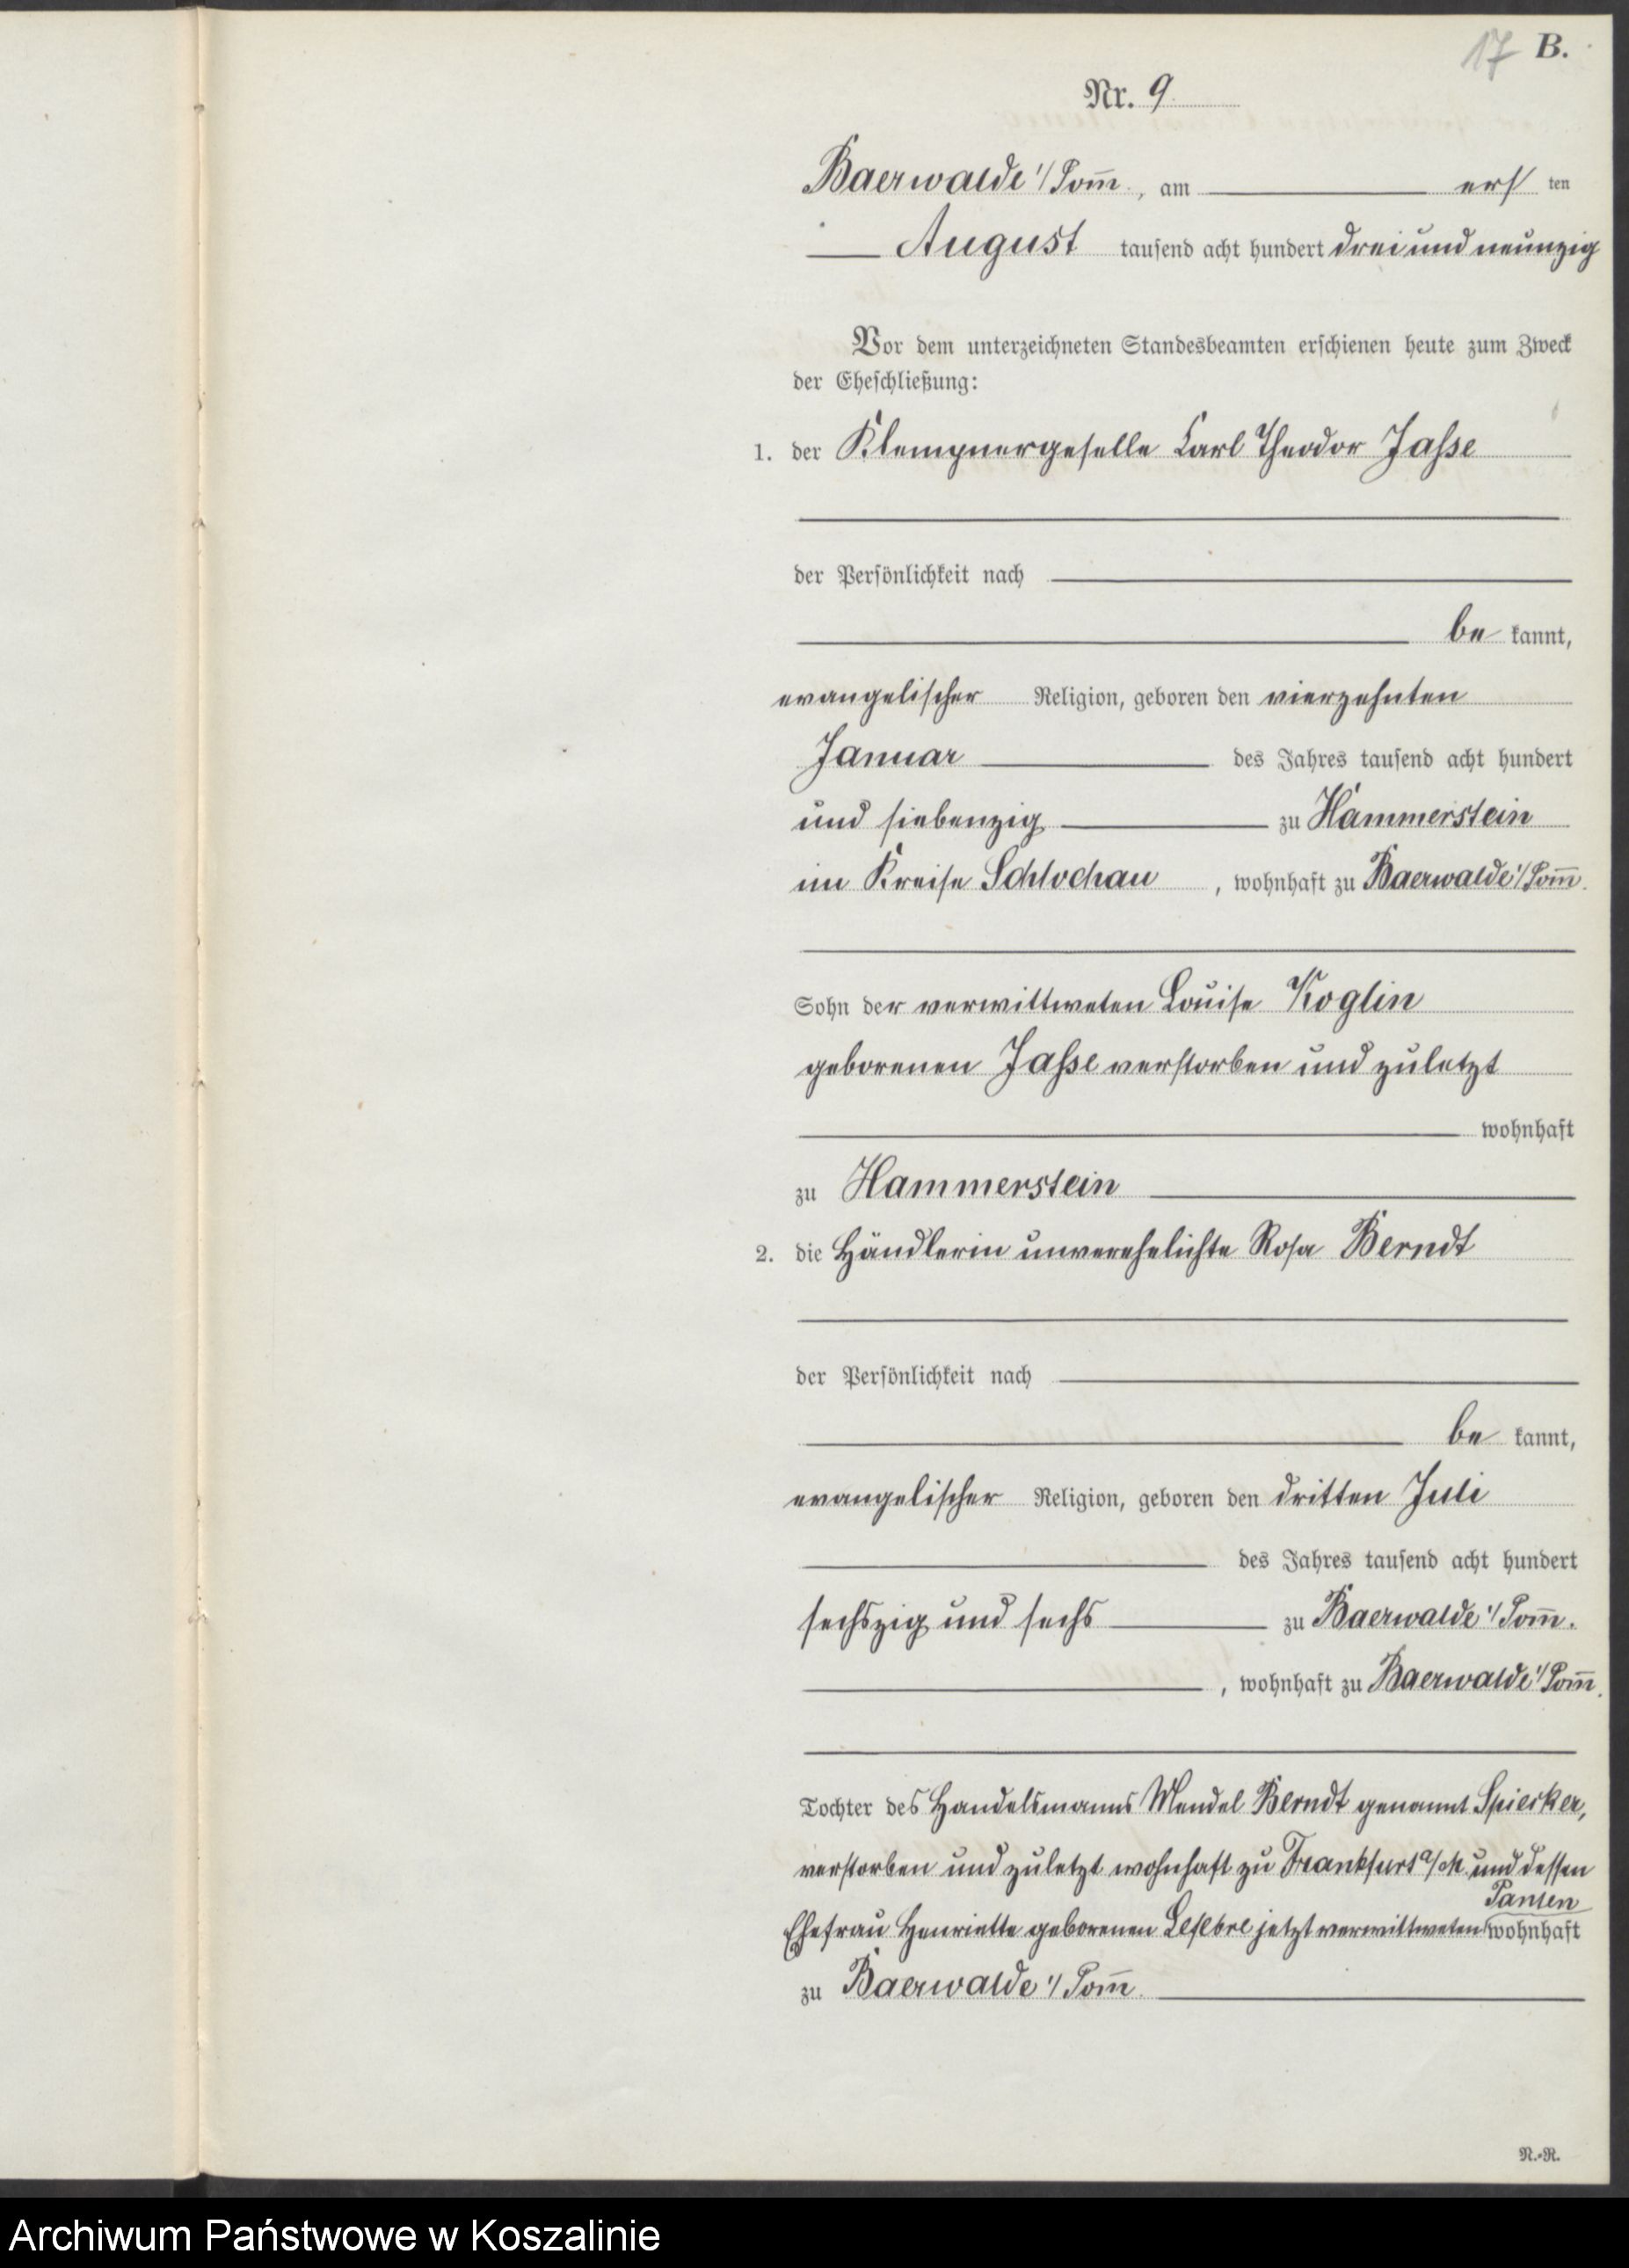 17 B.
Nr. 9
Baerwalde i/Pom̅., am erſten
August tauſend acht hundert drei und neunzig
Vor dem unterzeichneten Standesbeamten erſchienen heute zum Zweck
der Eheſchließung:
1. der Klempnergeſelle Carl Theodor Jaſse
der Perſönlichkeit nach
be kannt,
evangeliſcher Religion, geboren den vierzehnten
Januar des Jahres tauſend acht hundert
und ſiebenzig zu Hammerstein
im Kreiſe Schlochau, wohnhaft zu Baerwalde i/Pom̅.
Sohn der verwittweten Louiſe Koglin
geborenen Jaſse verſtorben und zuletzt
wohnhaft
zu Hammerstein
2. die Händlerin unverehelichte Roſa Berndt
der Perſönlichkeit nach
be kannt,
evangeliſcher Religion, geboren den dritten Juli
des Jahres tauſend acht hundert
ſechszig und ſechs zu Baerwalde i/Pom̅.
, wohnhaft zu Baerwalde i/Pom̅.
Tochter des Handelsmanns Mendel Berndt genannt Spiecker,
verſtorben und zuletzt wohnhaft zu Frankfurt a/M. und deſſen
Ehefrau Henriette geborenen Lefebre jetzt verwittweten wohnhaft
zu Baerwalde i/Pom̅.
N.-R.
Archiwum Państwowe w Koszalinie